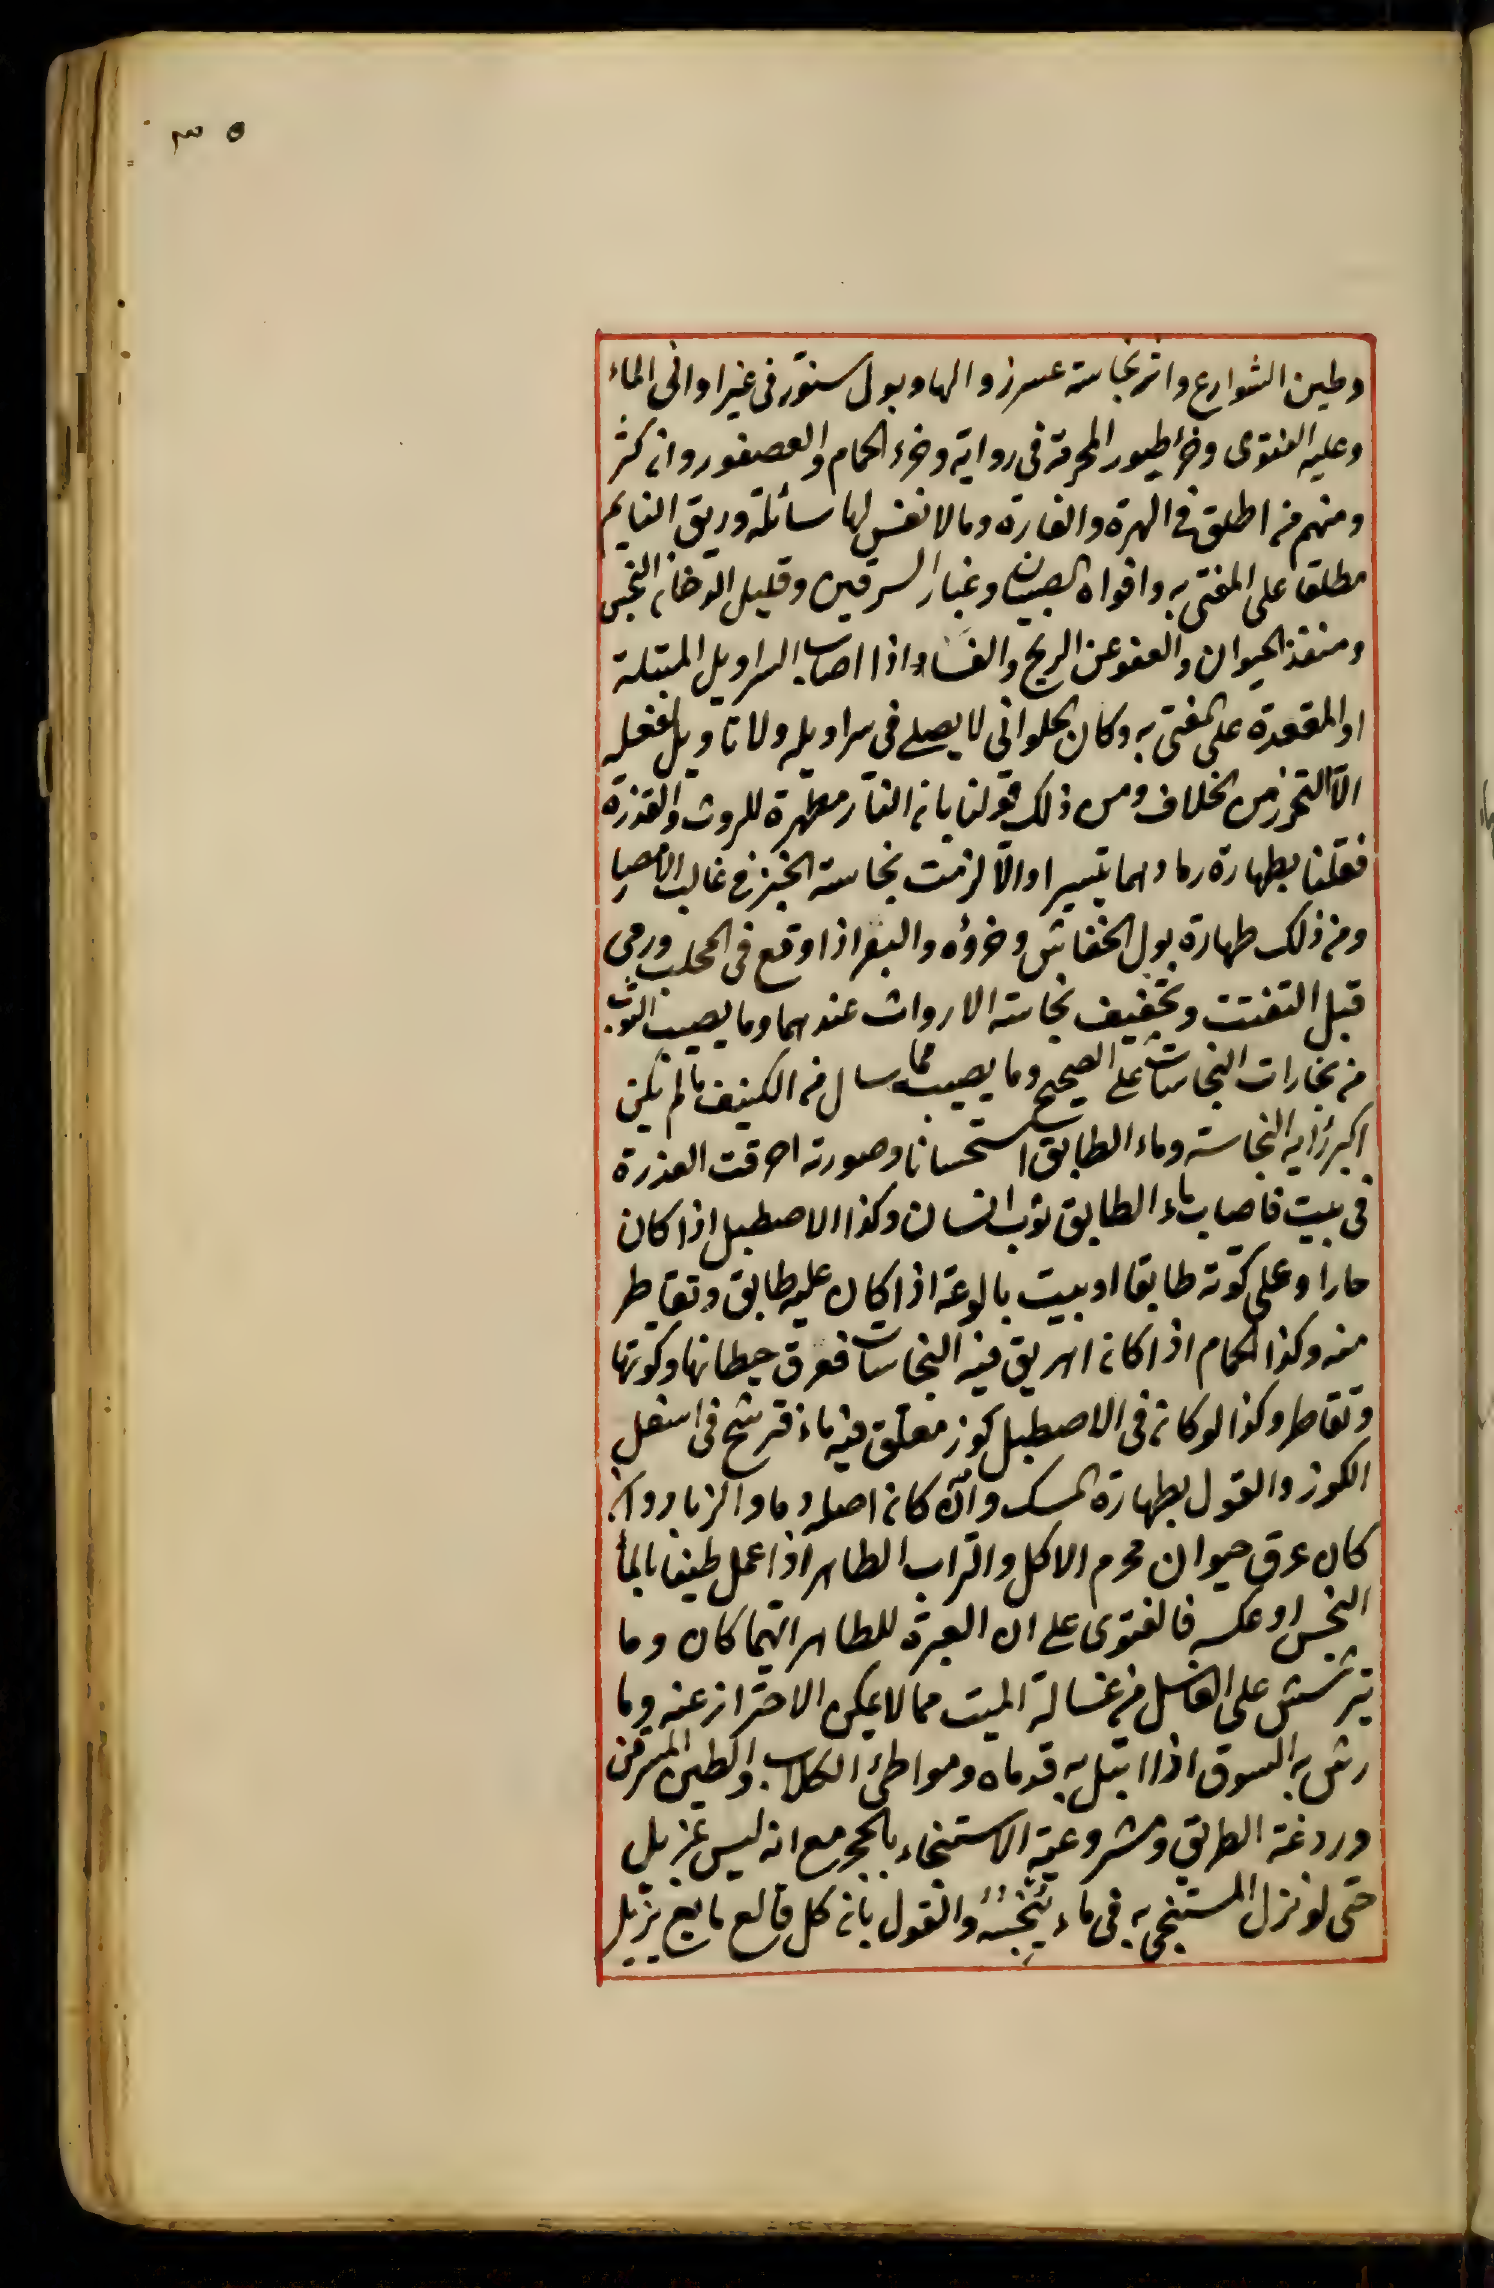 ٣٥
وطين الشوارع واثر نجاسة عسر زوالها وبول سنور فى غير اوانى الماء
وعليه الفتوى وخرأ طيور المحرمة فى رواية وخرء الحمام والعصفور وان كثر
ومنهم من اطلق فى الهرة والفارة وما لا نفس لها سائلة وريق النايم
مطلقا على المفتى به وافواه الصبيان وغبار السرقين وقليل الدخان النجس
ومنفذ الحيوان والعفو عن الريح والفساء اذا اصاب السراويل المبتلة
او المقعدة على المفتى به وكان الحلوانى لا يصلى فى سراويله ولا تاويل لفعله
الّا التحرز من الخلاف ومن ذلك قولنا بان النار مطهرة للروث والقذرة
فقلنا بطهارة رمادهما تيسيرا والّا لزمت نجاسة الخبز فى غالب الامصار
ومن ذلك طهارة بول الخفاش وخرؤه والبعر اذا وقع فى المحلب ورمى
قبل التفتت وتخفيف نجاسة الارواث عندهما وما يصيب الثوب
من بخارات النجاسات على الصحيح وما يصيب مما سال من الكنيف ما لم يكن
اكبر رأيه النجاسة وماء الطابق استحسانا وصورته احرقت العذرة
فى بيت فاصاب ماء الطابق ثوب انسان وكذا الاصطبل اذا كان
حارا وعلى كوته طابقا او بيت بالوعة اذا كان عليه طابق وتقاطر
منه وكذا الحمام اذا كان اهريق فيه النجاسات فعرق حيطانها وكوتها
وتقاطر وكذا لو كان فى الاصطبل كوز معلق فيه ماء فترشح فى اسفل
الكوز والقول بطهارة المسك وان كان اصله دما والزباد وان
كان عرق حيوان محرم الاكل والتراب الطاهر اذا عمل طينا بالماء
النجس او عكسه فالفتوى على ان العبرة للطاهر ايهما كان وما
يترشش على الغاسل من غسالة الميت مما لا يمكن الاحتراز عنه وما
رش به السوق اذا ابتل به قدماه ومواطئ الكلاب والطين المسرقن
وردغة الطريق ومشروعية الاستنجاء بالحجر مع انه ليس بمزيل
حتى لو نزل المستنجى به فى ماء ينجسه والقول بان كل قالع مايع يزيل